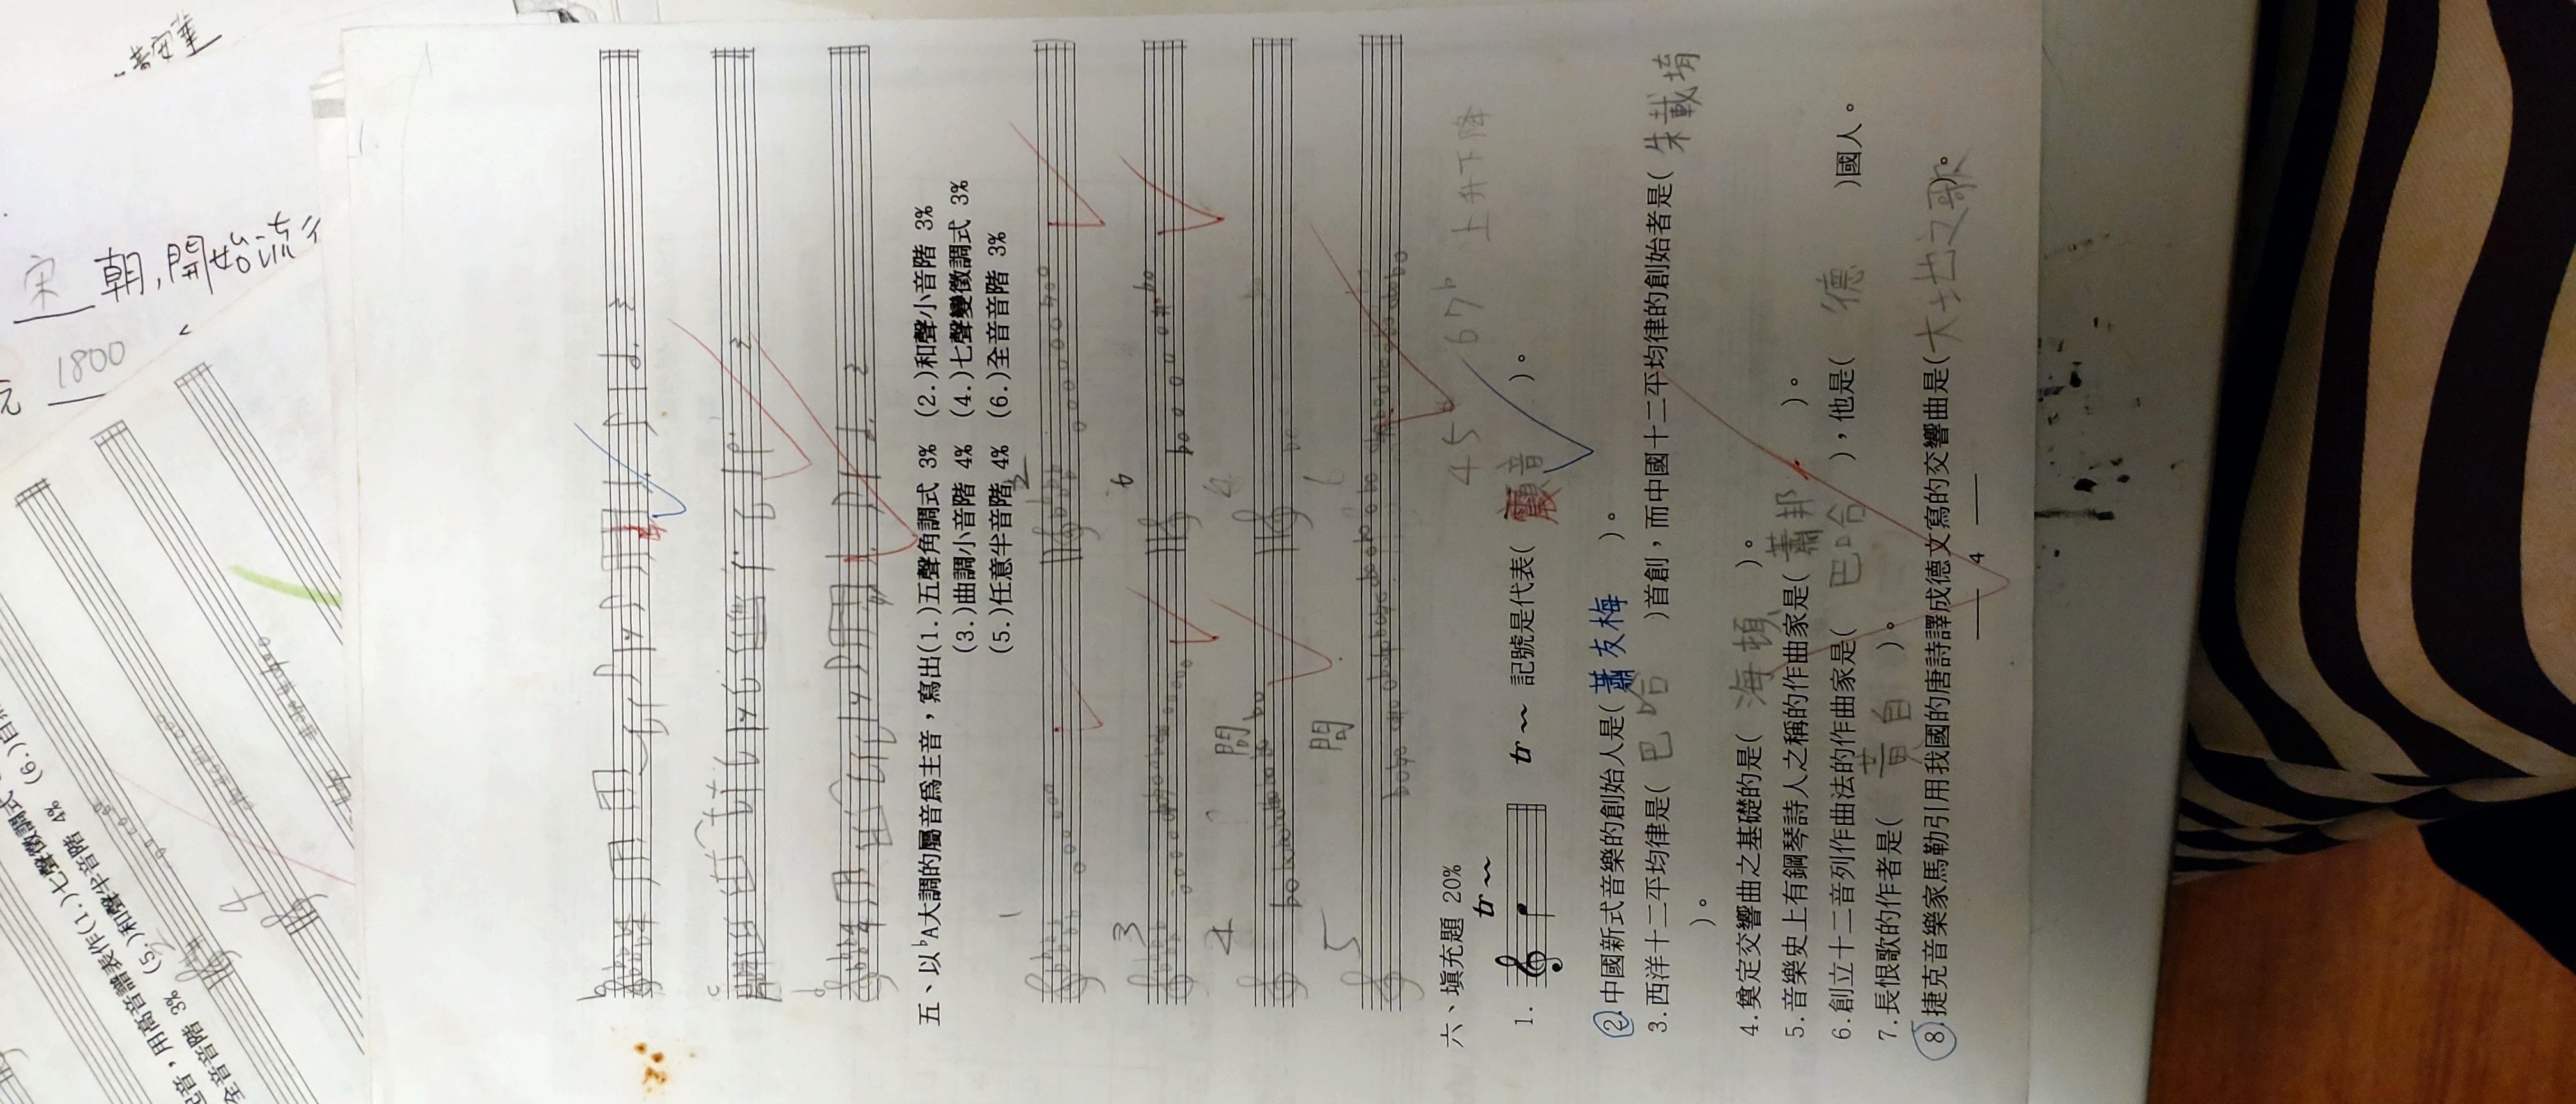 起音，用高音譜表作(1.)七聲徵調式
全音音階 3% (5.)和聲半音階 4% (6.)自
2
4
1800
宋 朝，開始流行
b
c
d
五、以♭A大調的屬音爲主音，寫出(1.)五聲角調式 3% (2.)和聲小音階 3%
(3.)曲調小音階 4% (4.)七聲變徵調式 3%
(5.)任意半音階 4% (6.)全音音階 3%
1 2
3 6
4 問
5 問
六、填充題 20%
45 67♭ 上升下降
tr~~
1. tr~~ 記號是代表( 震音 )。
2.中國新式音樂的創始人是( 蕭友梅 )。
3.西洋十二平均律是( 巴哈 )首創，而中國十二平均律的創始者是( 朱載堉
)。
4.奠定交響曲之基礎的是( 海頓 )。
5.音樂史上有鋼琴詩人之稱的作曲家是( 蕭邦 )。
6.創立十二音列作曲法的作曲家是( 巴哈 )，他是( 德 )國人。
7.長恨歌的作者是( 黃自 )。
8.捷克音樂家馬勒引用我國的唐詩譯成德文寫的交響曲是(大地之歌)。
4